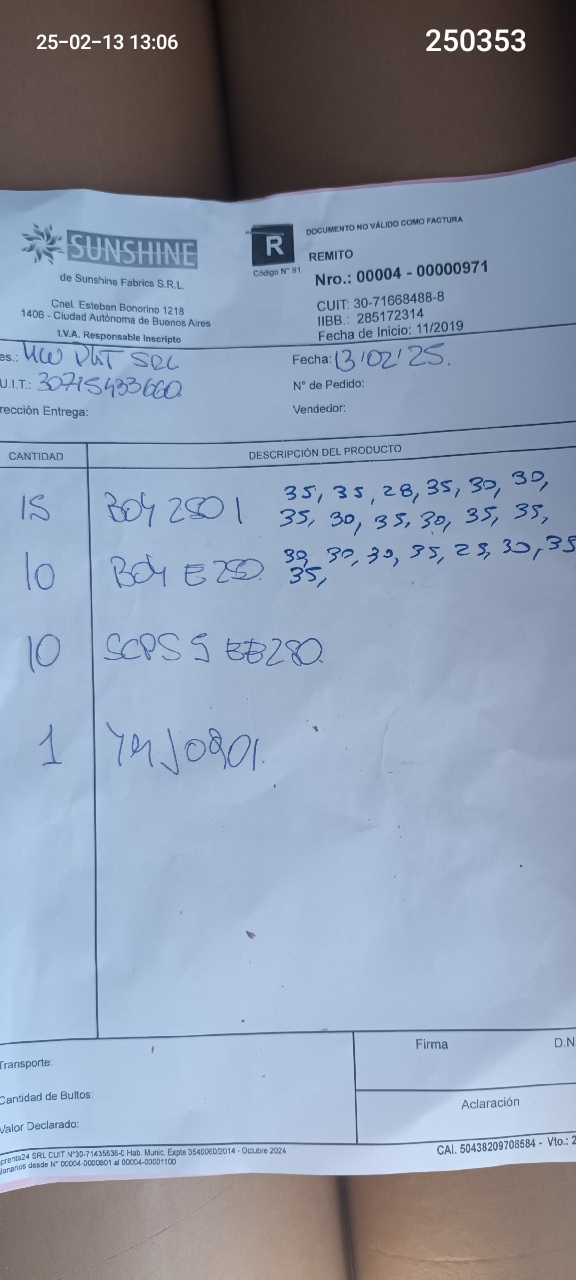 25-02-13 13:06
250353
SUNSHINE
de Sunshine Fabrics S.R.L.
Cnel. Esteban Bonorino 1218
1406 - Ciudad Autónoma de Buenos Aires
I.V.A. Responsable Inscripto
R
Código N° 91
DOCUMENTO NO VÁLIDO COMO FACTURA
REMITO
Nro.: 00004 - 00000971
CUIT: 30-71668488-8
IIBB.: 285172314
Fecha de Inicio: 11/2019
es.: SRL
U.I.T.: 30715433660
rección Entrega:
Fecha: 13/02/25.
N° de Pedido:
Vendedor:
CANTIDAD DESCRIPCIÓN DEL PRODUCTO
15 2501 35, 35, 28, 35, 30, 30,
35, 30, 35, 30, 35, 35,
10 E 280 30, 30, 30, 35, 25, 30, 35
35,
10 SCPS 5 280
1
Transporte:
Cantidad de Bultos:
Valor Declarado:
Firma D.N
Aclaración
prenta24 SRL CUIT N°30-71435636-0 Hab. Munic. Expte 3540060/2014 - Octubre 2024
ionarios desde N° 00004-00000801 al 00004-00001100
CAI. 50438209708584 - Vto.: 2